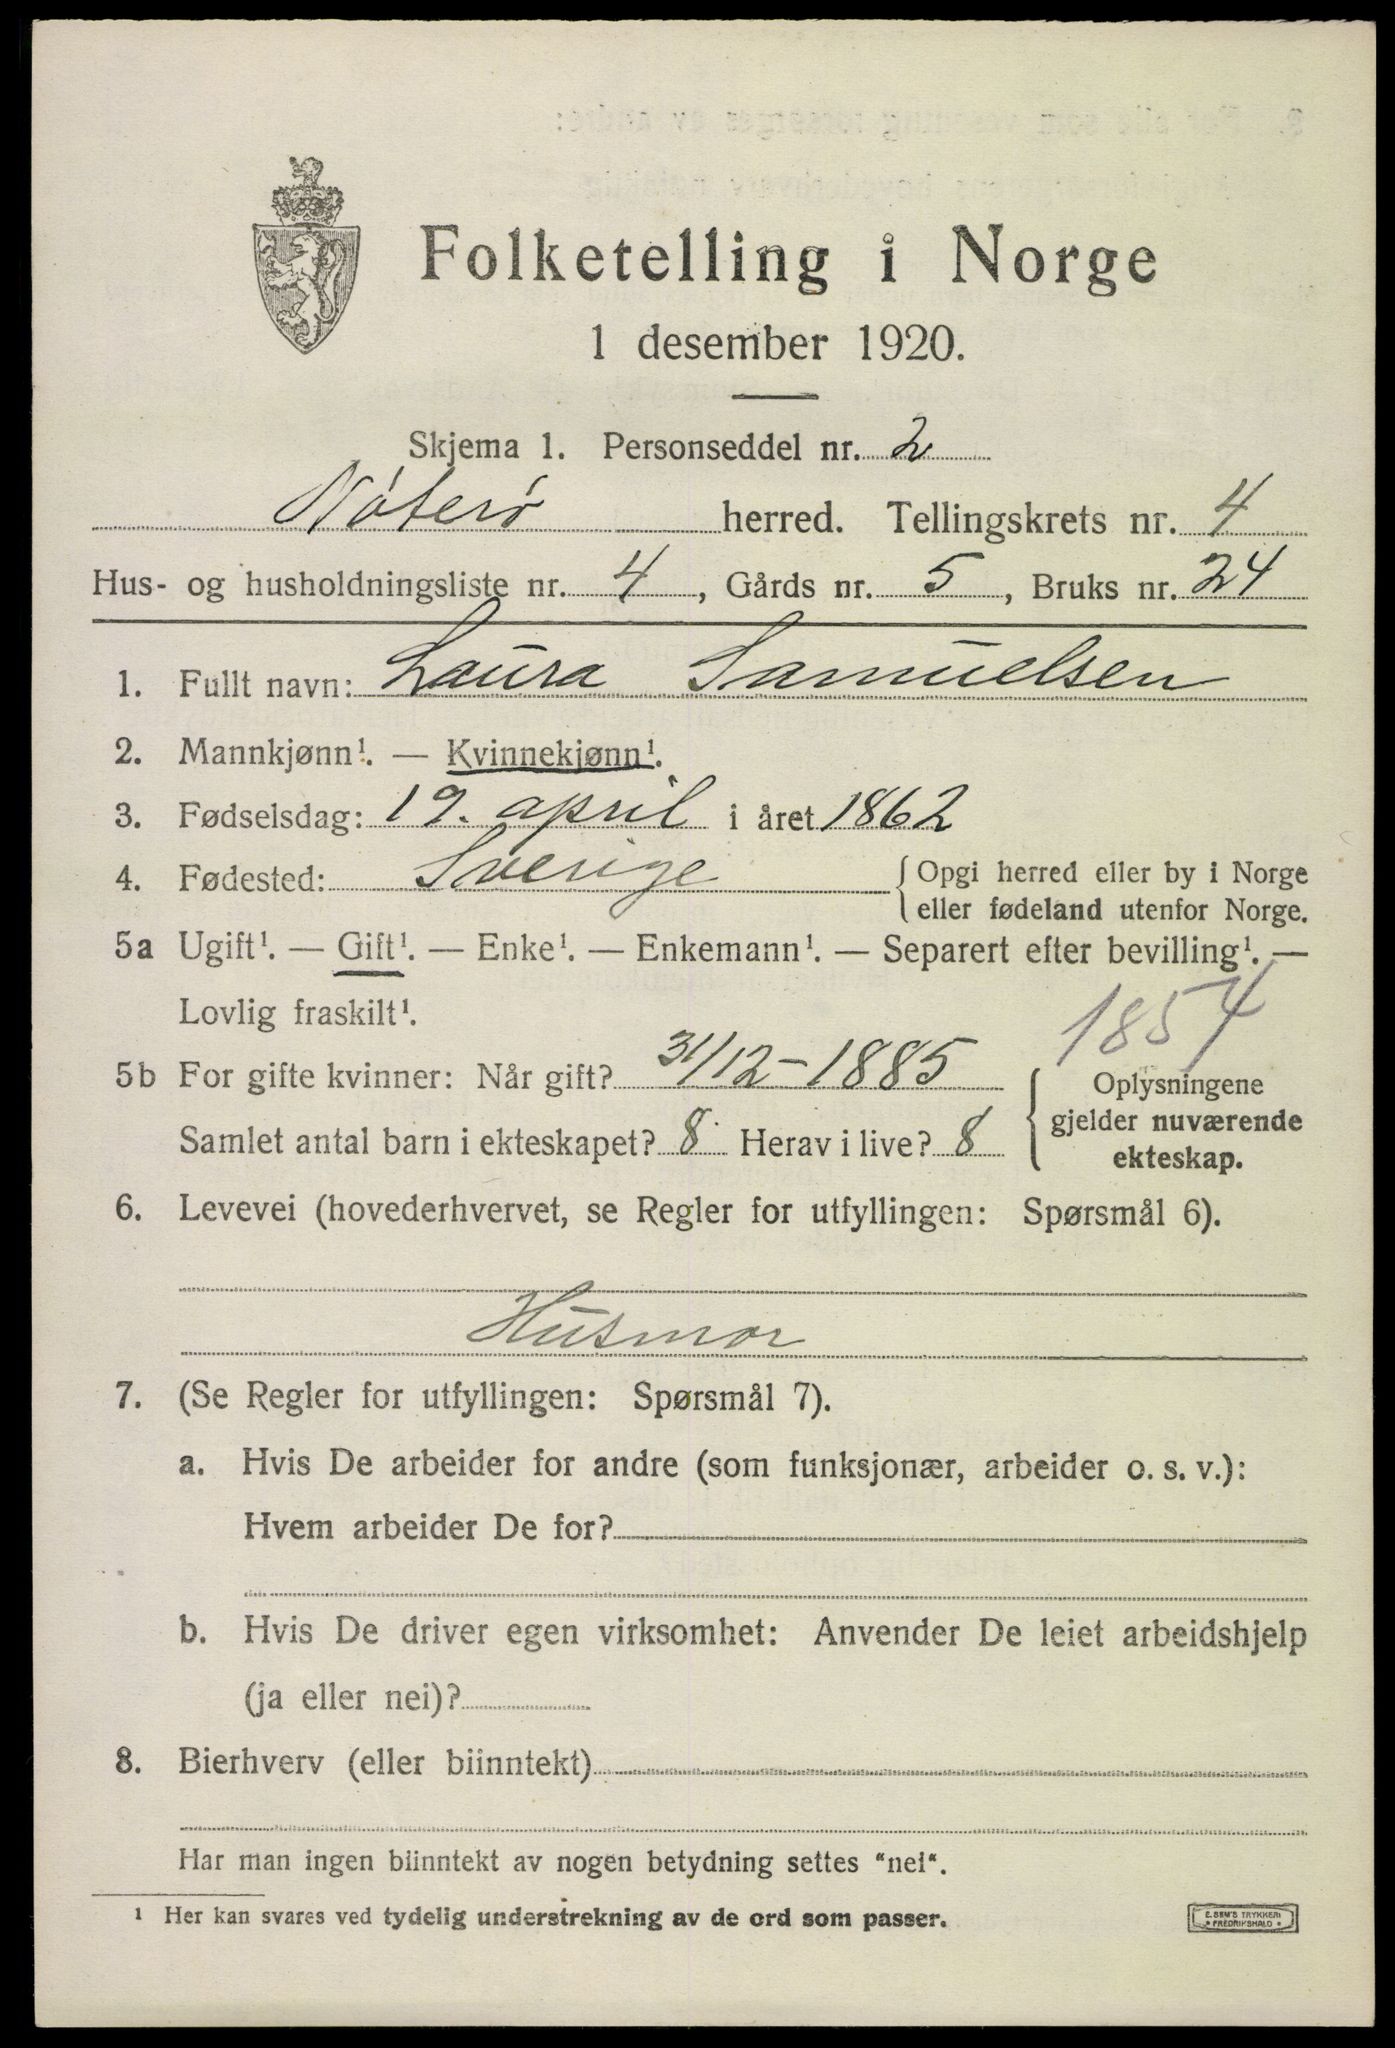 Folketelling i Norge
1 desember 1920.
Skjema 1. Personseddel nr. 2
Nøterø herred. Tellingskrets nr. 4
Hus- og husholdningsliste nr. 4, Gårds nr. 5, Bruks nr. 24
1. Fullt navn: Laura Samuelsen
2. Mannkjønn¹. — Kvinnekjønn¹.
3. Fødselsdag: 19. april i året 1862
4. Fødested: Sverige { Opgi herred eller by i Norge
eller fødeland utenfor Norge.
5a Ugift¹. — Gift¹. — Enke¹. — Enkemann¹. — Separert efter bevilling¹. —
Lovlig fraskilt¹.
1854
5b For gifte kvinner: Når gift? 31/12-1885
Samlet antal barn i ekteskapet? 8 Herav i live? 8
{ Oplysningene
gjelder nuværende
ekteskap.
6. Levevei (hovederhvervet, se Regler for utfyllingen: Spørsmål 6).
Husmor
7. (Se Regler for utfyllingen: Spørsmål 7).
a. Hvis De arbeider for andre (som funksjonær, arbeider o. s. v.):
Hvem arbeider De for?
b. Hvis De driver egen virksomhet: Anvender De leiet arbeidshjelp
(ja eller nei)?
8. Bierhverv (eller biinntekt)
Har man ingen biinntekt av nogen betydning settes "nei".
¹ Her kan svares ved tydelig understrekning av de ord som passer.
E. SEM'S TRYKKERI
FREDRIKSHALD